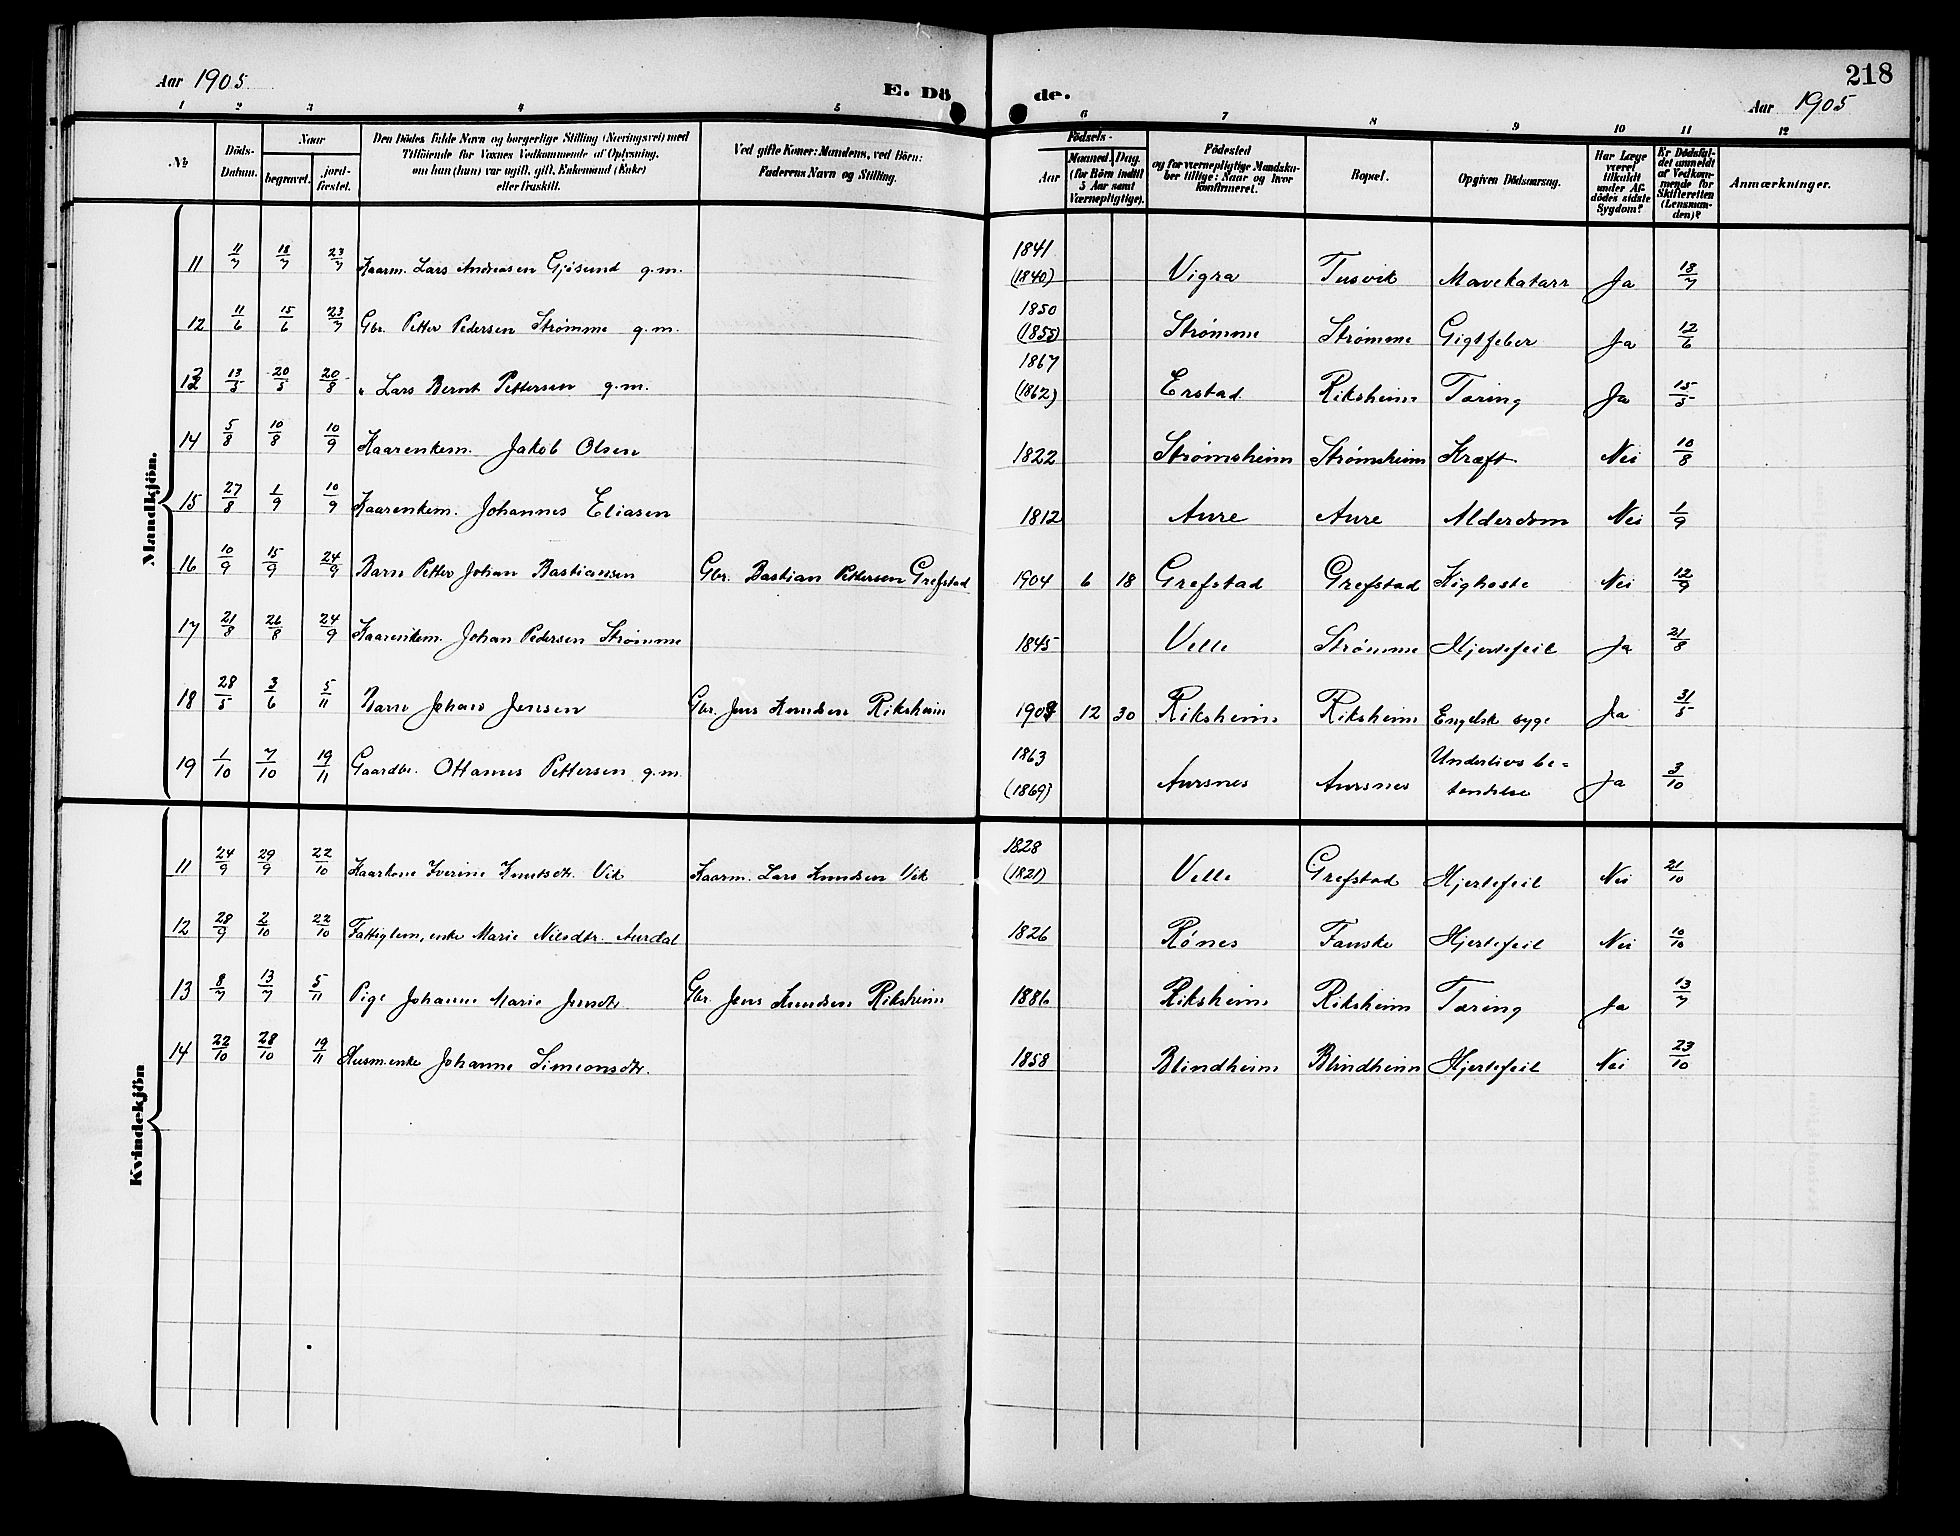 Aar 1905
E. Dö
de.
218
Aar 1905
1 2 3 4 5 6 7 8 9 10 11 12
№
Döds-Datum.
Naar
begravet.
jord-fæstet.
Den Dödes fulde Navn og borgerlige Stilling (Næringsvei) med
Tilföiende for Voxnes Vedkommende af Oplysning,
om han (hun) var ugift, gift, Enkemand (Enke)
eller fraskilt.
Ved gifte Koner: Mandens, ved Börn:
Faderens Navn og Stilling.
Födsels-
Aar
Maaned. Dag.
(for Börn indtil
5 Aar samt
Værnepligtige).
Födested
og for værnepligtige Mandsku-
ber tillige: Naar og hvor
Konfirmeret.
Bopæl.
Opgiven Dödsaarsag.
Har Læge
været
tilkaldt
under Af-
dödes sidste
Sygdom?
Er Dödsfal-
det anmeldt
af Vedkom-
mende for
Skifteretten
(Lensman-
den)?
Anmærkninger.
Mandkjön.
11 11/7 18/7 23/7 Kaarm. Lars Andreasen Gjøsund g.m. 1841 (1840) Vigra Tusvik Mavekatarr Ja 18/7
12 11/6 15/6 23/7 Gbr. Petter Pedersen Strømme g.m. 1850 (1855) Strømme Strømme Gigtfeber Ja 12/6
13 13/5 20/5 20/8 " Lars Bernt Pettersen g.m. 1867 (1862) Erstad Riksheim Tæring Ja 15/5
14 5/8 10/8 10/9 Kaarenkem. Jakob Olsen 1822 Strømsheim Strømsheim Kræft Nei 10/8
15 27/8 1/9 10/9 Kaarenkem. Johannes Eliasen 1812 Aure Aure Alderdom Nei 1/9
16 10/9 15/9 24/9 Barn Petter Johan Bastiansen Gbr. Bastian Pettersen Grefstad 1904 6 18 Grefstad Grefstad Kighoste Nei 12/9
17 21/8 26/8 24/9 Kaarenkem. Johan Pedersen Strømme 1845 Velle Strømme Hjertefeil Ja 21/8
18 28/5 3/6 5/11 Barn Johan Jensen Gbr. Jens Knudsen Riksheim 1904 12 30 Riksheim Riksheim Engelsk syge Ja 31/5
19 1/10 7/10 19/11 Gaardbr. Ottanus Pettersen g.m. 1863 (1869) Aursnes Aursnes Underlivsbe-
tændelse Ja 3/10
Kvindekjön
11 24/9 29/9 22/10 Kaarkone Iverine Knutsdtr. Vik Kaarm. Lars Knudsen Vik 1828 (1821) Velle Grefstad Hjertefeil Nei 21/10
12 28/9 2/10 22/10 Fattiglem, enke Marie Nilsdtr. Aurdal 1826 Rönes Fauske Hjertefeil Nei 10/10
13 8/7 13/7 5/11 Pige Johanne Marie Jensdtr. Gbr. Jens Knudsen Riksheim 1886 Riksheim Riksheim Tæring Ja 13/7
14 22/10 28/10 19/11 Husm.enke Johanne Simeonsdtr. 1858 Blindheim Blindheim Hjertefeil Nei 23/10